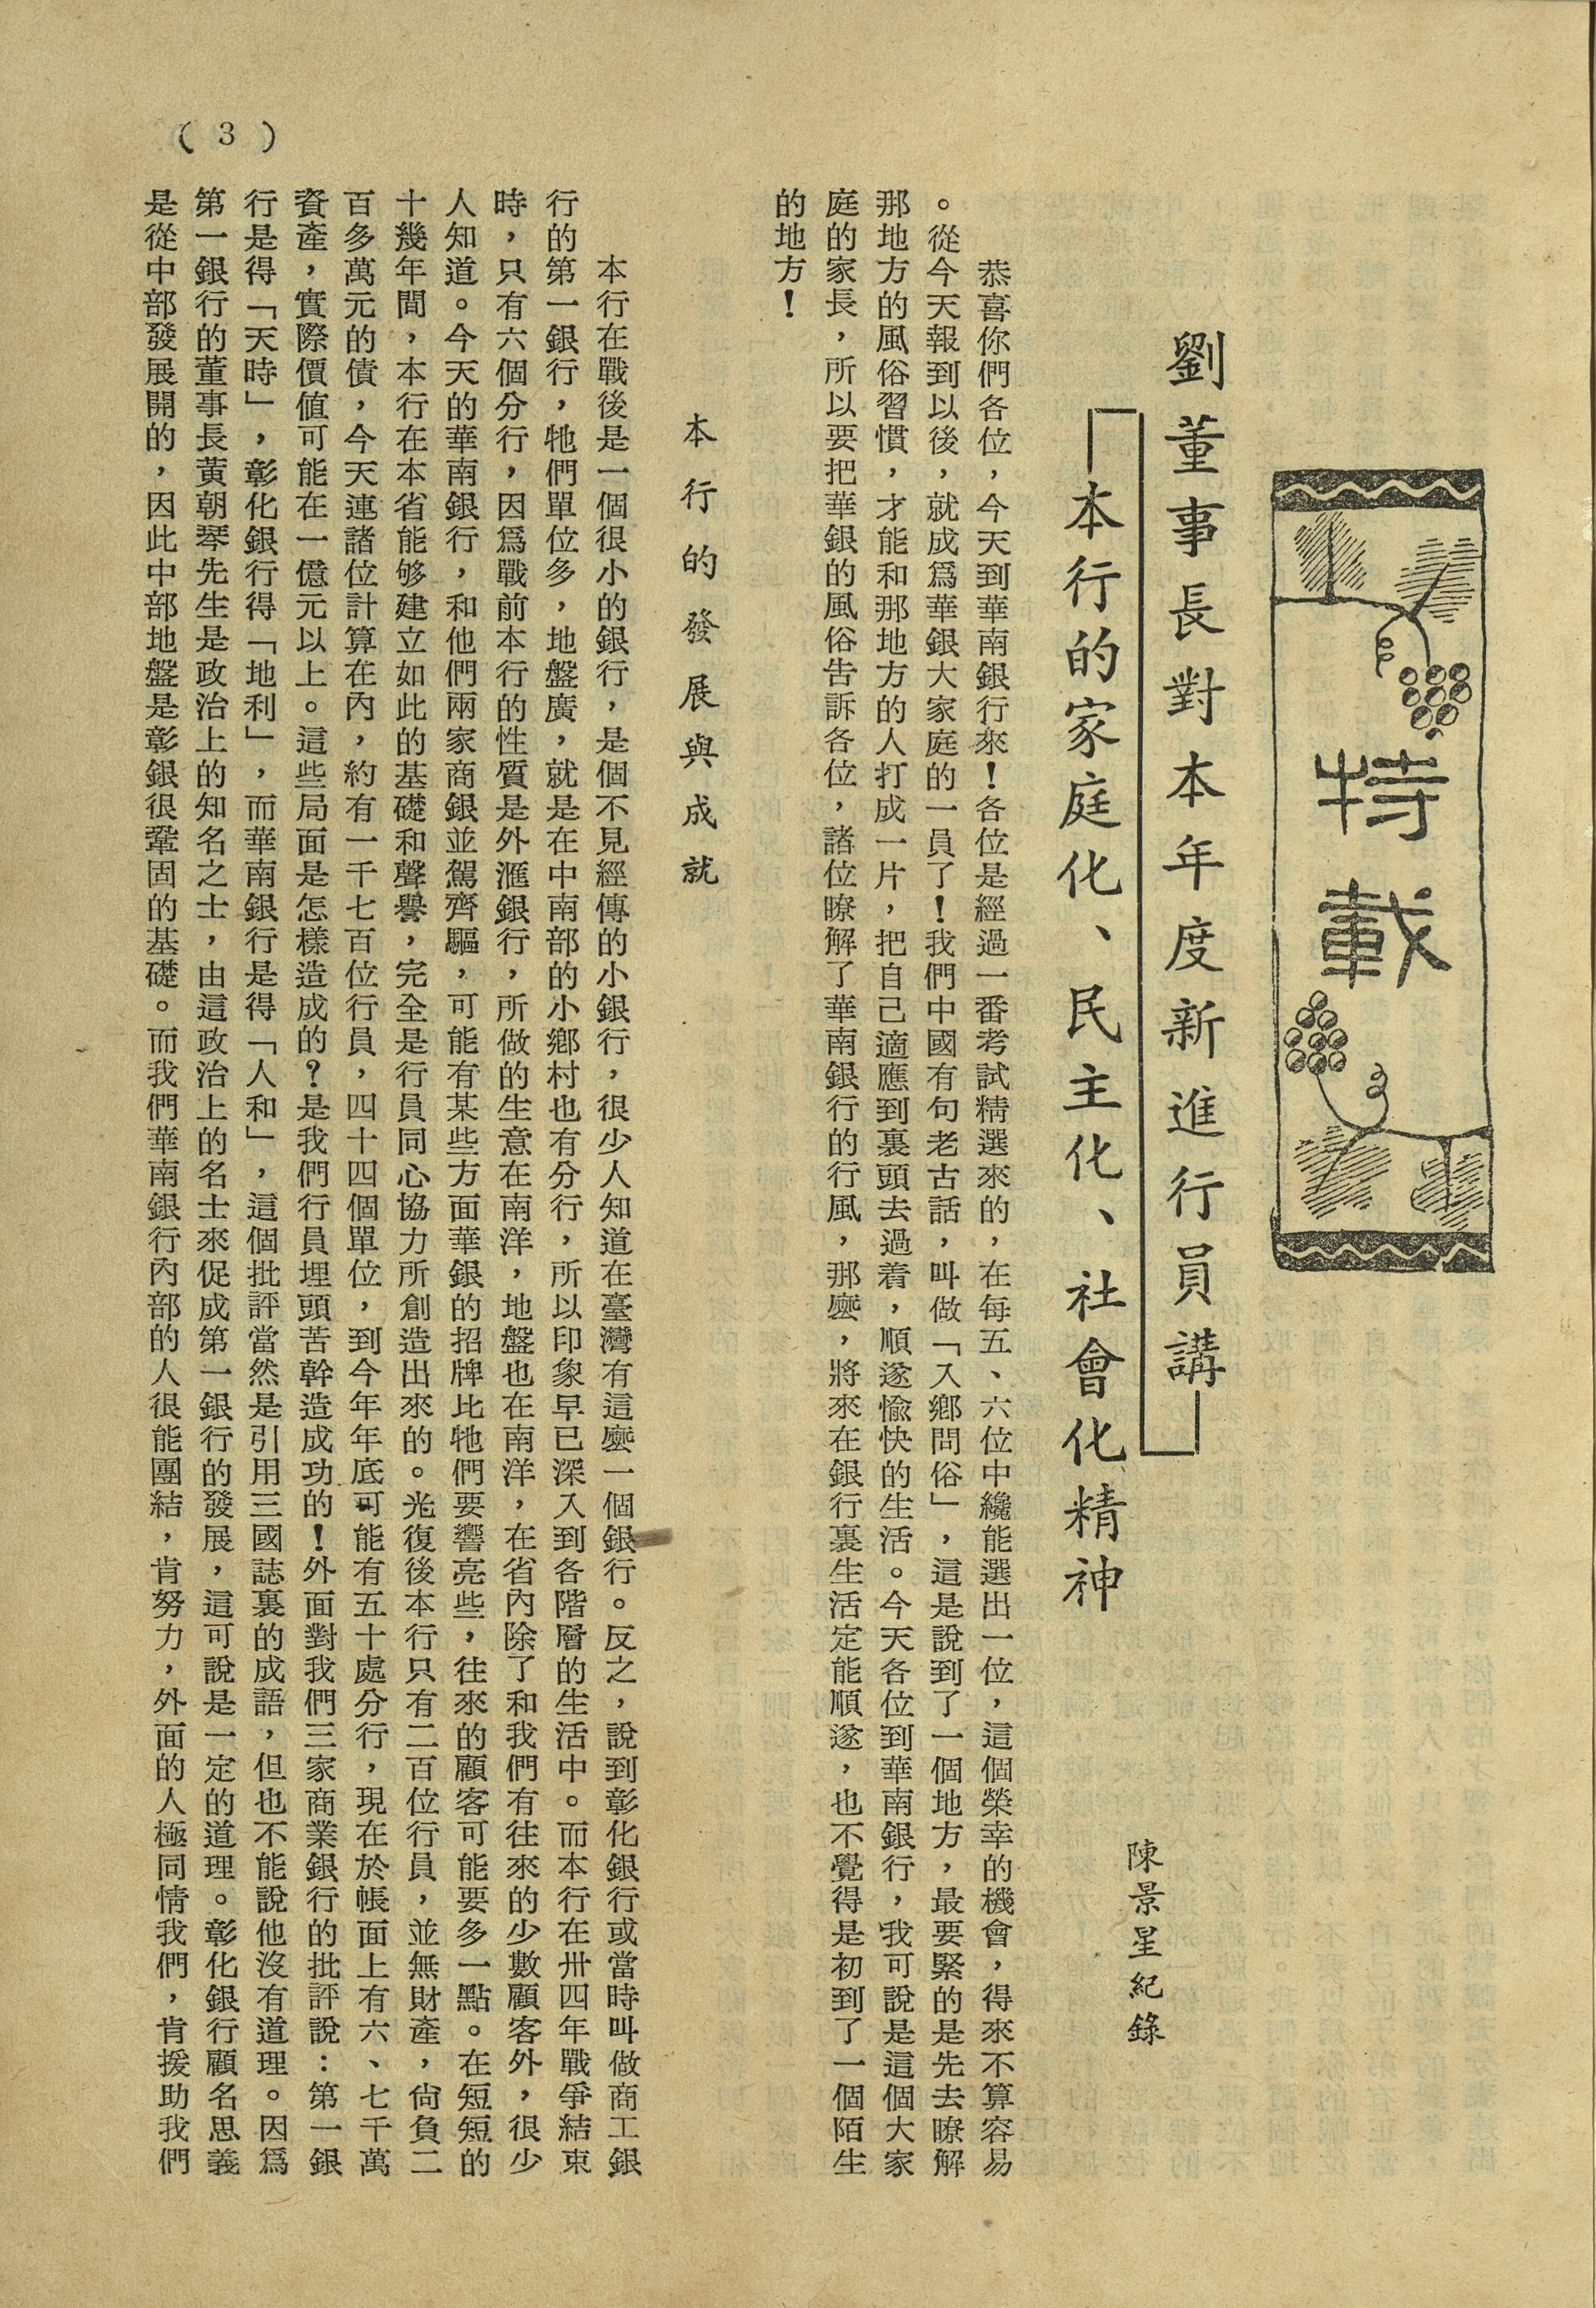 特載
劉董事長對本年度新進行員講
本行的家庭化、民主化、社會化精神
陳景星紀錄
恭喜你們各位，今天到華南銀行來！各位是經過一番考試精選來的，在每五、六位中纔能選出一位，這個榮幸的機會，得來不算容易
。從今天報到以後，就成爲華銀大家庭的一員了！我們中國有句老古話，叫做「入鄉問俗」，這是說到了一個地方，最要緊的是先去瞭解
那地方的風俗習慣，才能和那地方的人打成一片，把自己適應到裏頭去過着，順遂愉快的生活。今天各位到華南銀行，我可說是這個大家
庭的家長，所以要把華銀的風俗告訴各位，諸位瞭解了華南銀行的行風，那麽，將來在銀行裏生活定能順遂，也不覺得是初到了一個陌生
的地方！
本行的發展與成就
本行在戰後是一個很小的銀行，是個不見經傳的小銀行，很少人知道在臺灣有這麽一個銀行。反之，說到彰化銀行或當時叫做商工銀
行的第一銀行，牠們單位多，地盤廣，就是在中南部的小鄉村也有分行，所以印象早已深入到各階層的生活中。而本行在卅四年戰爭結束
時，只有六個分行，因爲戰前本行的性質是外滙銀行，所做的生意在南洋，地盤也在南洋，在省內除了和我們有往來的少數顧客外，很少
人知道。今天的華南銀行，和他們兩家商銀並駕齊驅，可能有某些方面華銀的招牌比牠們要響亮些，往來的顧客可能要多一點。在短短的
十幾年間，本行在本省能够建立如此的基礎和聲譽，完全是行員同心協力所創造出來的。光復後本行只有二百位行員，並無財產，尙負二
百多萬元的債，今天連諸位計算在內，約有一千七百位行員，四十四個單位，到今年年底可能有五十處分行，現在於帳面上有六、七千萬
資產，實際價值可能在一億元以上。這些局面是怎樣造成的？是我們行員埋頭苦幹造成功的！外面對我們三家商業銀行的批評說：第一銀
行是得「天時」，彰化銀行得「地利」，而華南銀行是得「人和」，這個批評當然是引用三國誌裏的成語，但也不能說他沒有道理。因爲
第一銀行的董事長黃朝琴先生是政治上的知名之士，由這政治上的名士來促成第一銀行的發展，這可說是一定的道理。彰化銀行顧名思義
是從中部發展開的，因此中部地盤是彰銀很鞏固的基礎。而我們華南銀行內部的人很能團結，肯努力，外面的人極同情我們，肯援助我們
( 3 )